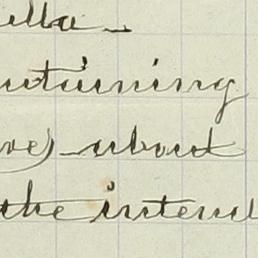 ella -
ntaining
ve) about
the intend